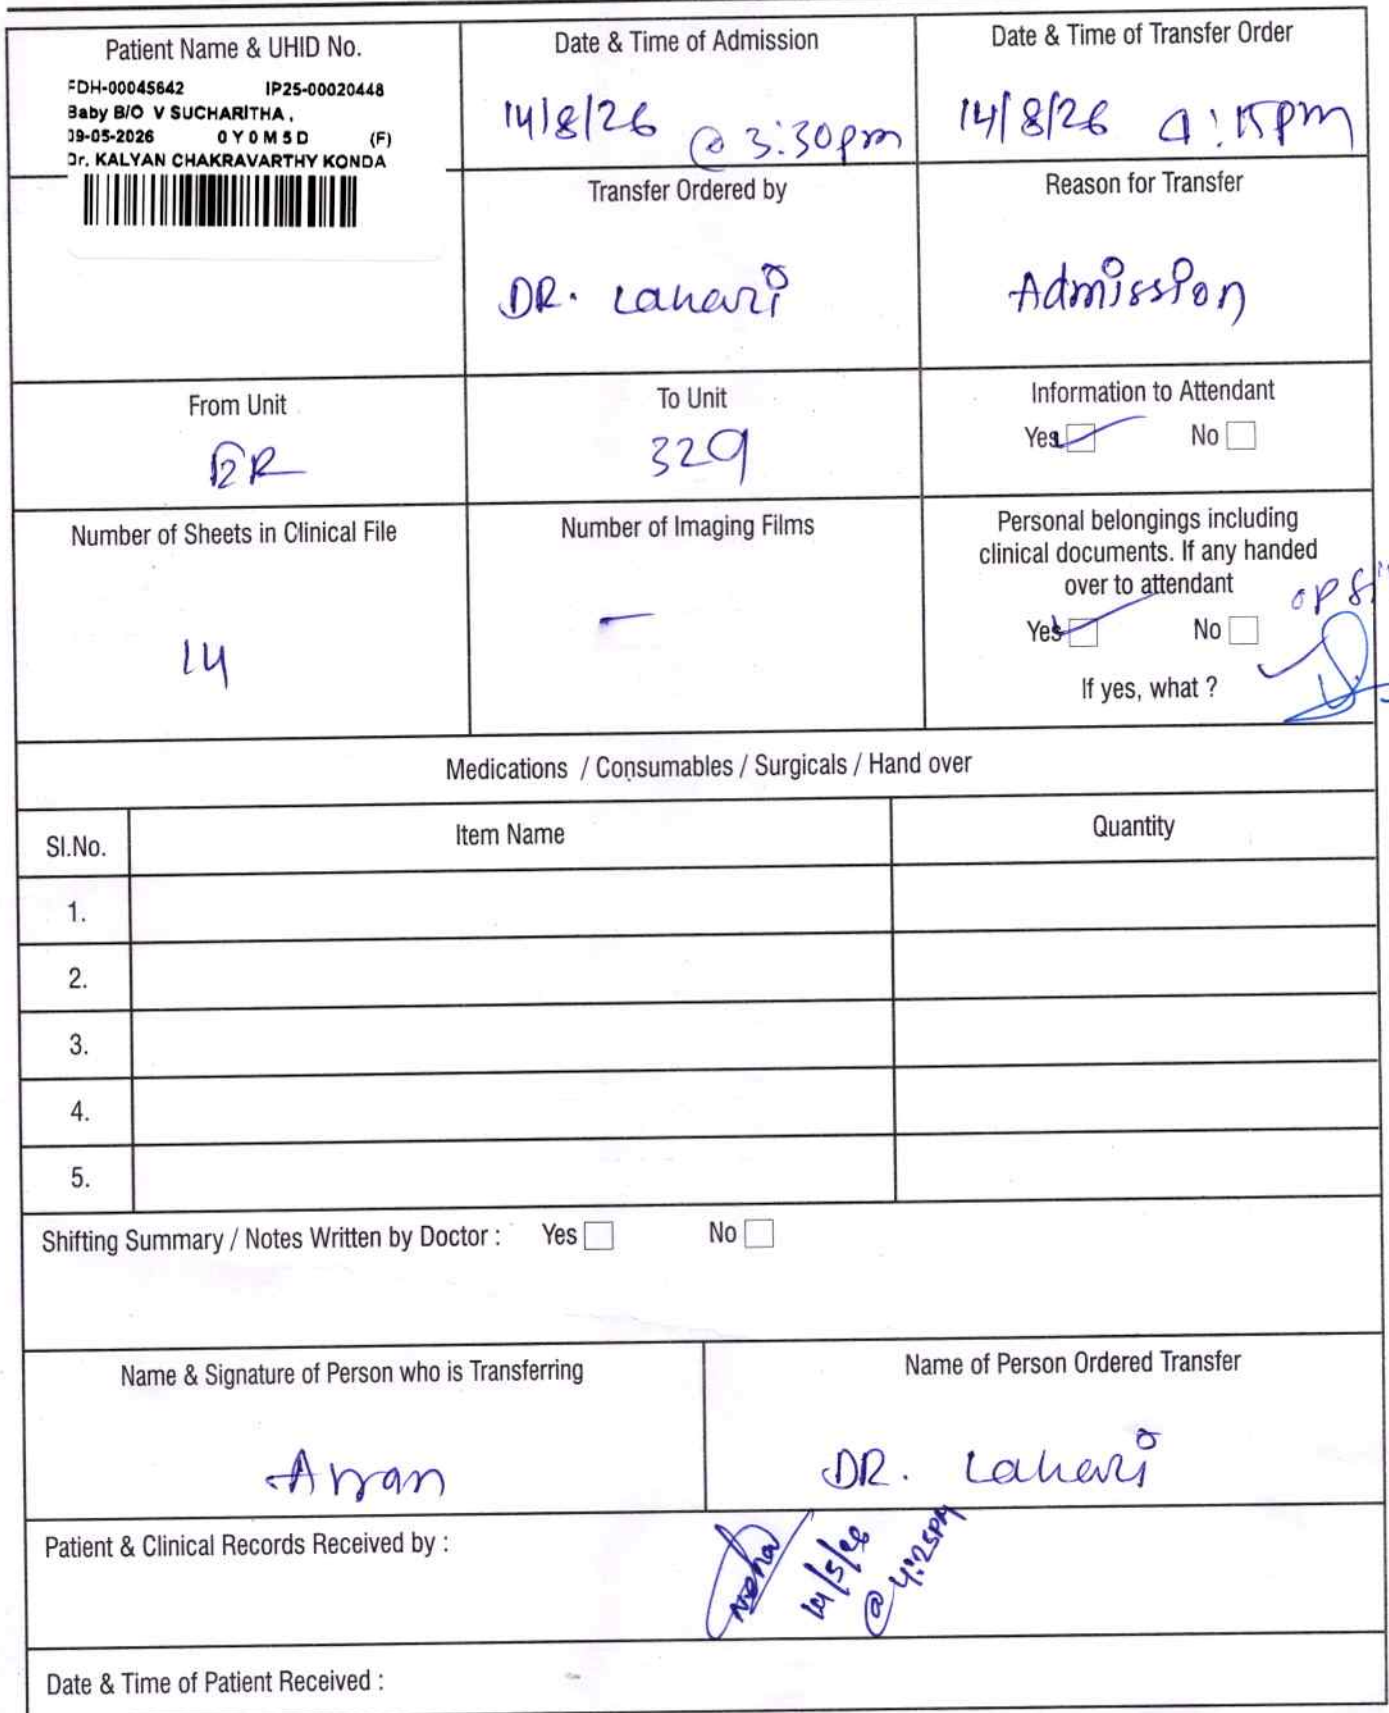 Patient Name & UHID No.
FDH-00045642 IP25-00020448
Baby B/O V SUCHARITHA,
09-05-2026 0Y0M5D (F)
Dr. KALYAN CHAKRAVARTHY KONDA
Date & Time of Admission
14/8/26 @ 3:30pm
Date & Time of Transfer Order
14/8/26 4:15pm
Transfer Ordered by
DR. Lahari
Reason for Transfer
Admission
From Unit
ER
To Unit
329
Information to Attendant
Yes No
Number of Sheets in Clinical File
14
Number of Imaging Films
—
Personal belongings including
clinical documents. If any handed
over to attendant
Yes No
If yes, what ?
Medications / Consumables / Surgicals / Hand over
Sl.No. Item Name Quantity
1.
2.
3.
4.
5.
Shifting Summary / Notes Written by Doctor : Yes No
Name & Signature of Person who is Transferring
Name of Person Ordered Transfer
DR. Lahari
Patient & Clinical Records Received by :
14/5/26
@ 4:25PM
Date & Time of Patient Received :